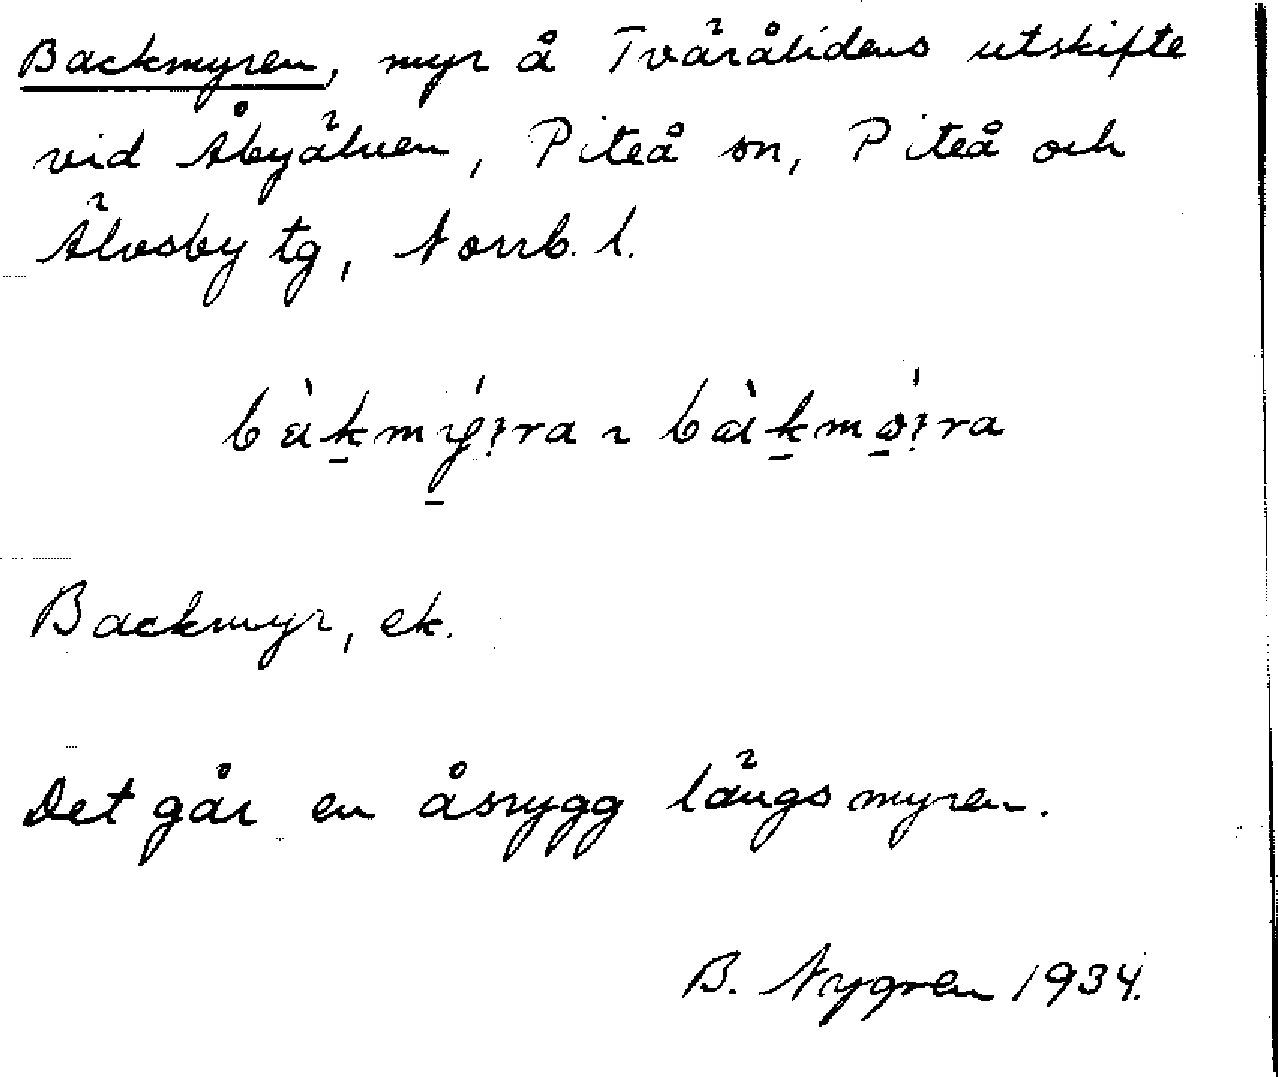 Backmyren, myr å Tväråtidens utskifte
vid Åbyälven, Piteå sn, Piteå och
Älvsby tg, Norrb. l.
bàk̠mý̠:ra ~ bàk̠mǿ̠:ra
Backmyr, ek.
Det går en åsrygg längs myren.
B. Nygren 1934.